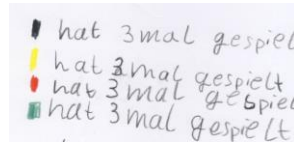 hat 3mal gespielt
hat 3mal gespielt
hat 3 mal gespielt
hat 3mal gespielt